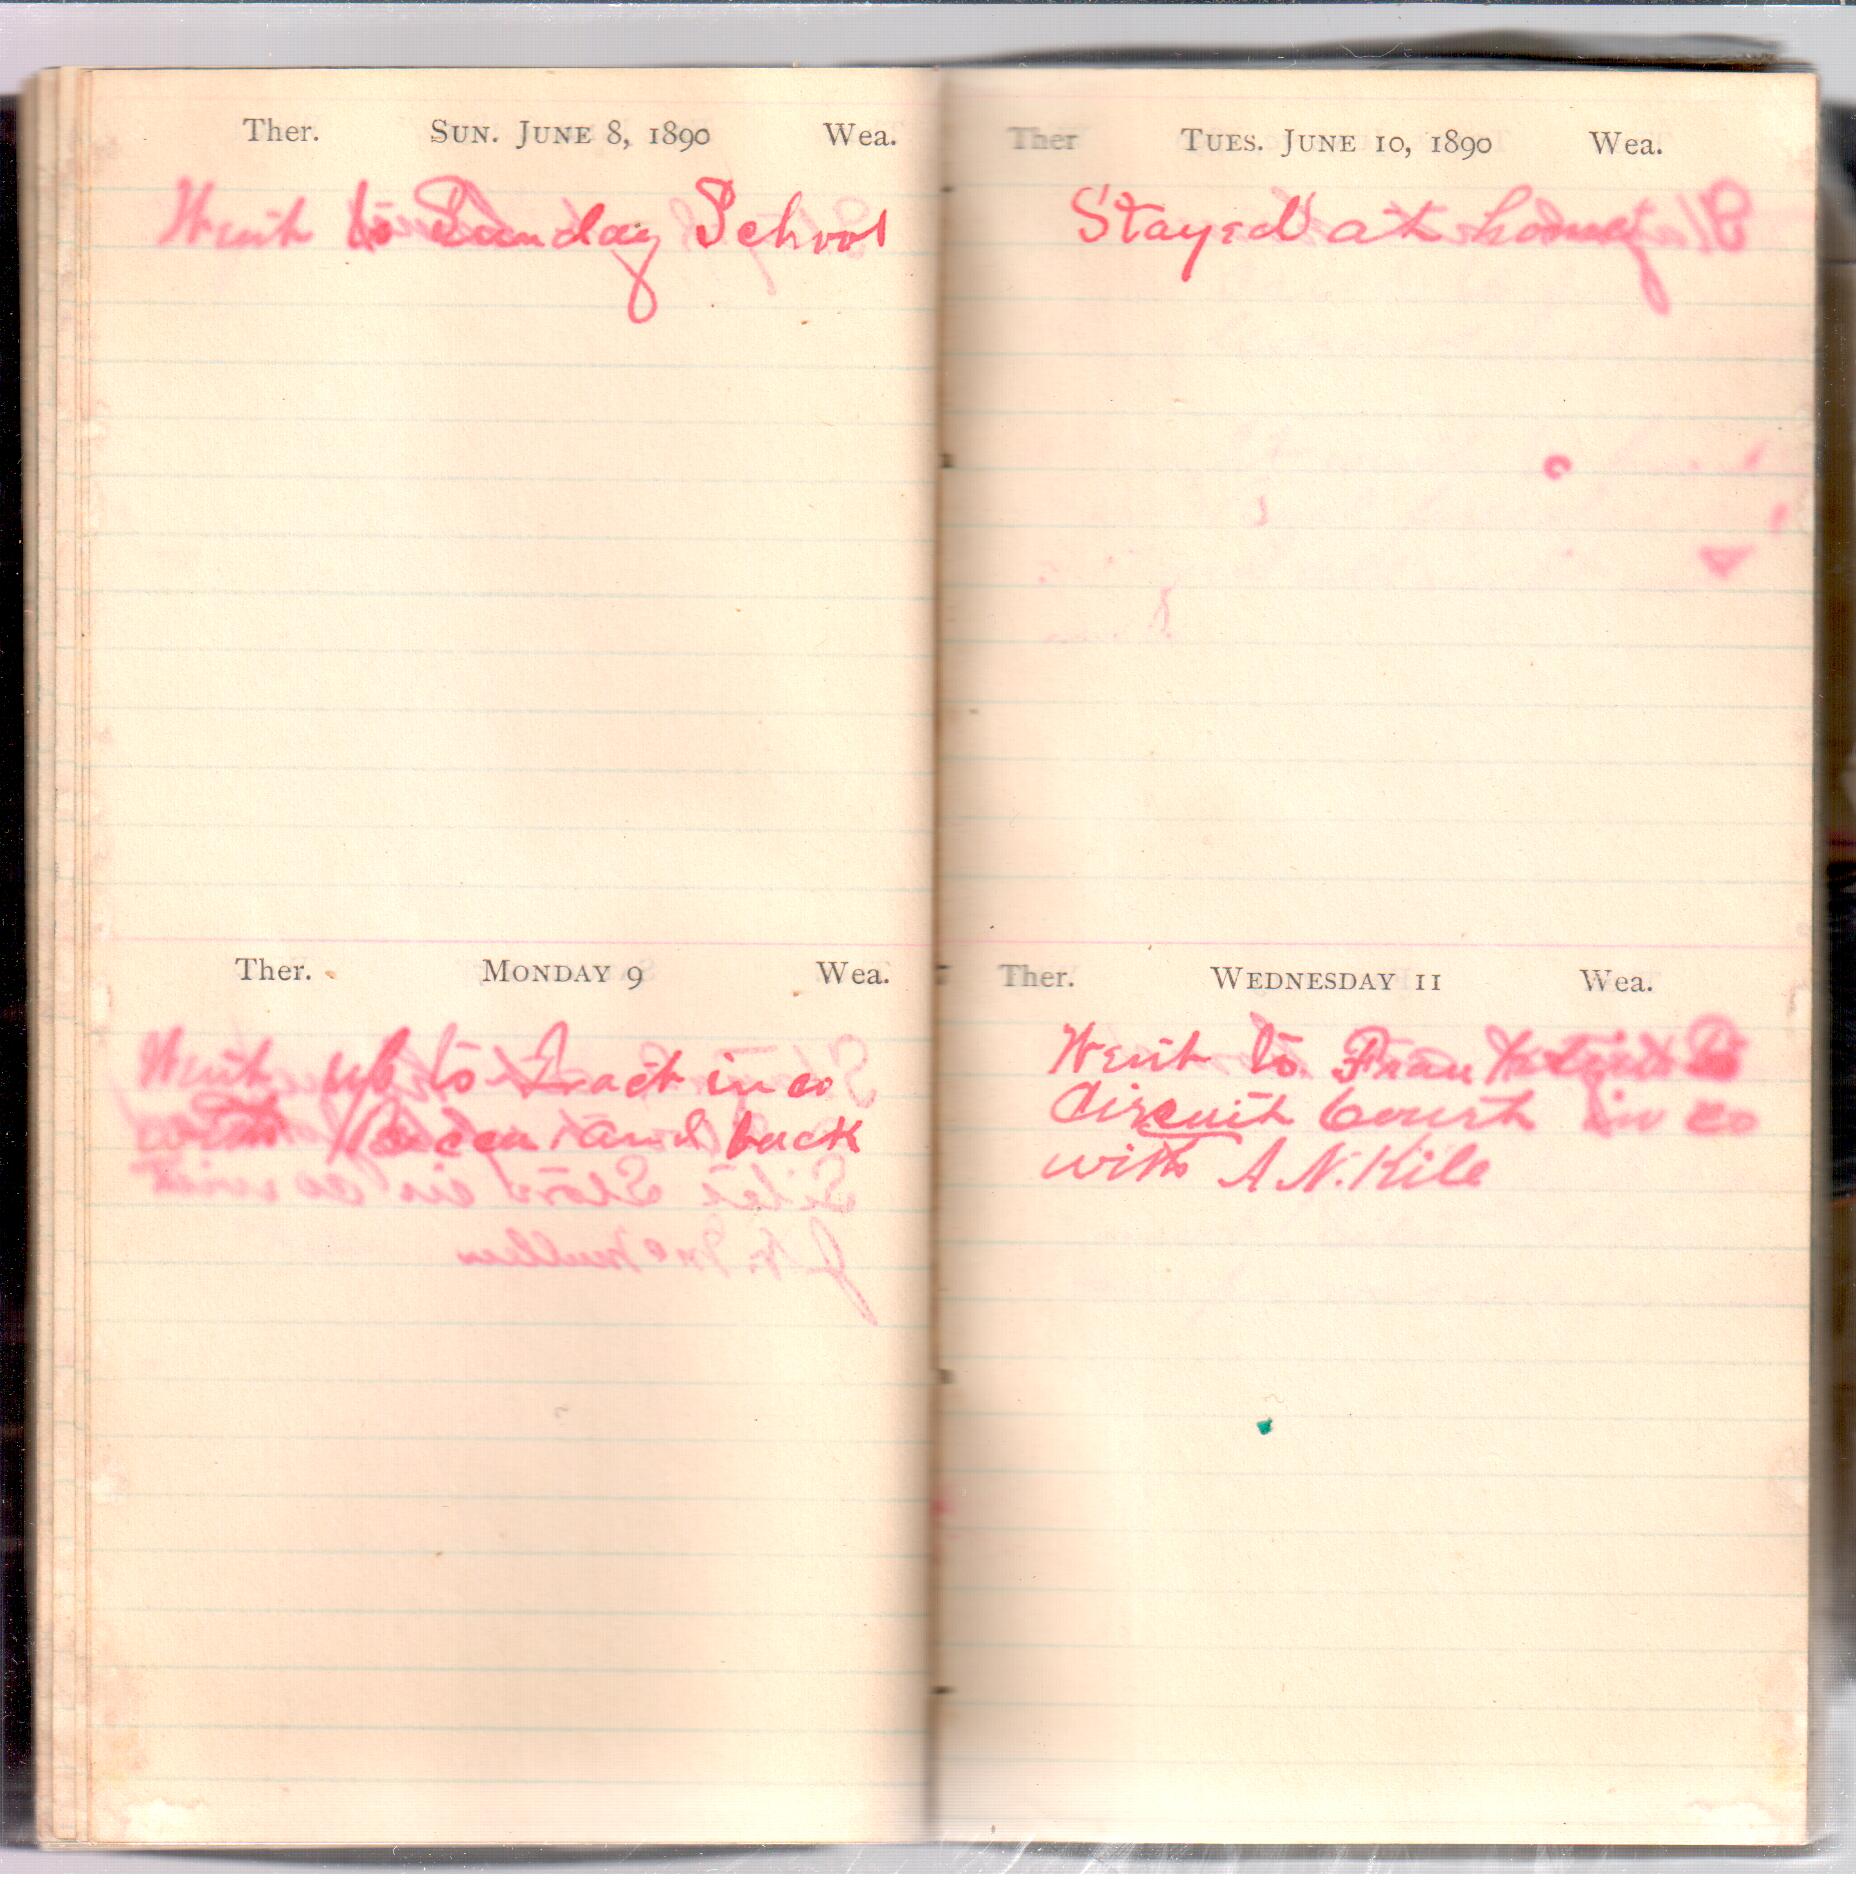 Ther. SUN. JUNE 8, 1890 Wea.
Went to Sunday School
Ther. MONDAY 9 Wea.
Went up to Tract in co
with and back
Ther TUES. JUNE 10, 1890 Wea.
Stayed at home
Ther. WEDNESDAY 11 Wea.
Went to Franklin to
Circuit Court in co
with A N. Kile